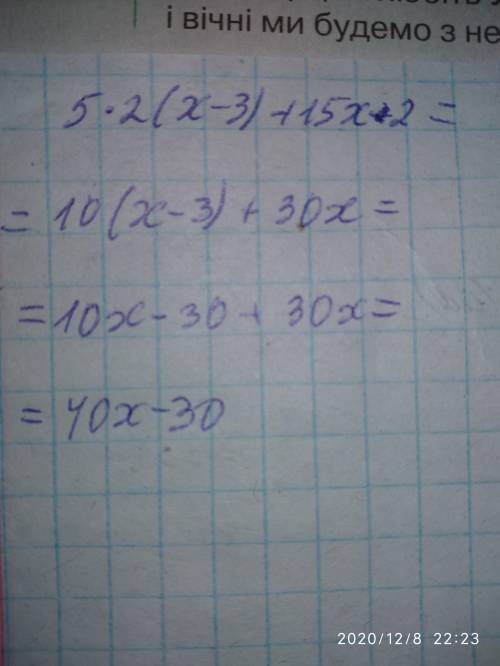 і вічні ми будемо з не
5·2(x-3)+15x·2=
=10(x-3)+30x=
=10x-30+30x=
=40x-30
2020/12/8 22:23